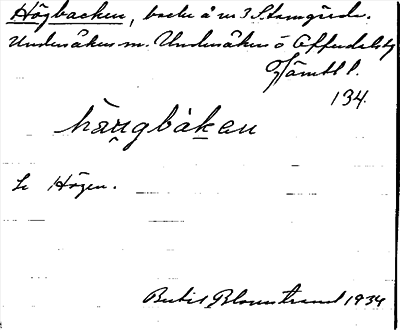 Högbacken, backe å nr 3 Stamgärde.
Undersåkers sn. Undersåkers o Offerdals tg
Jämtl l.
134.
hàu̯gbàkan
Se Högen.
Bertil Blomstrand 1934